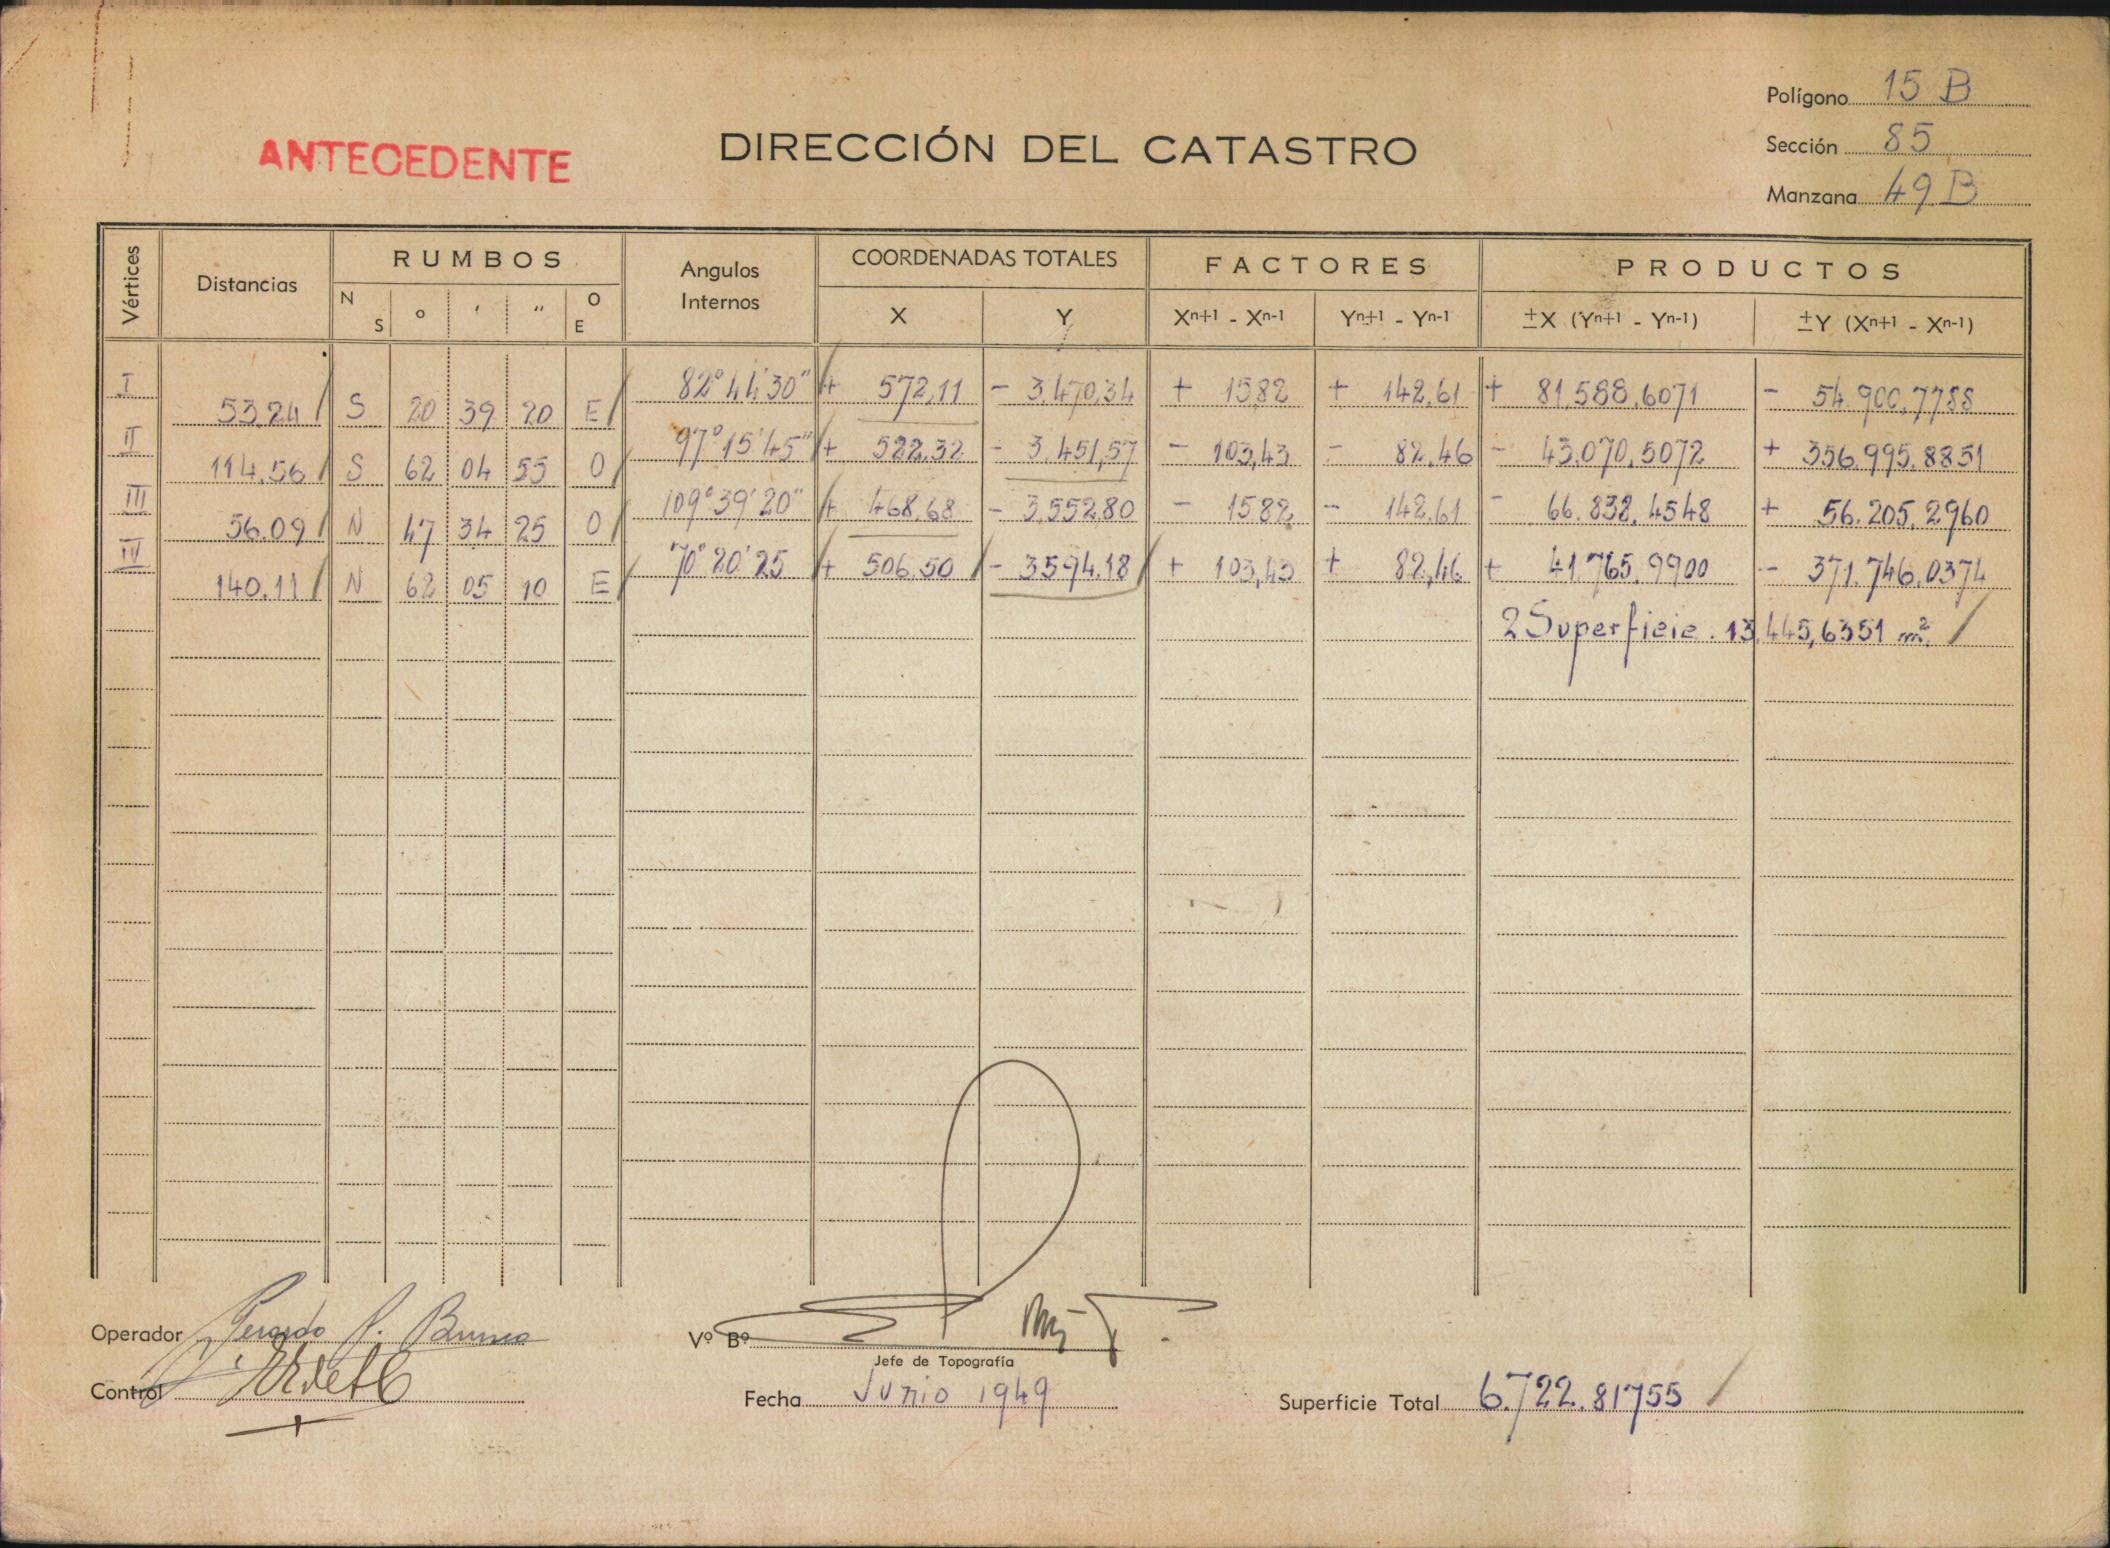 Polígono 15 B
ANTECEDENTE
DIRECCIÓN DEL CATASTRO
Sección 85
Manzana 49 B
Vértices Distancias RUMBOS Angulos Internos COORDENADAS TOTALES FACTORES PRODUCTOS
N S ° ' " O E X Y Xn+1 - Xn-1 Yn+1 - Yn-1 ±X (Yn+1 - Yn-1) ±Y (Xn+1 - Xn-1)
I 82°44'30" + 572,11 - 3.470,34 + 15,82 + 142,61 + 81.588,6071 - 54.900,7788
53.24 S 20 39 20 E
II 97°15'45" + 522,32 - 3.451,57 - 103,43 - 82,46 - 43.070,5072 + 356.995,8851
114.56 S 62 04 55 O
III 109°39'20" + 468,68 - 3.552,80 - 15,82 - 142,61 - 66.838,4548 + 56.205,2960
56.09 N 47 34 25 O
IV 70°20'25 + 506,50 - 3594,18 + 103,43 + 82,46 + 41.765,9900 - 371.746,0374
140.11 N 62 05 10 E
2 Superficie. 13.445,6351 m².
Operador Gerardo
Vº Bº
Jefe de Topografía
Control
Fecha Junio 1949
Superficie Total 6.722.81755